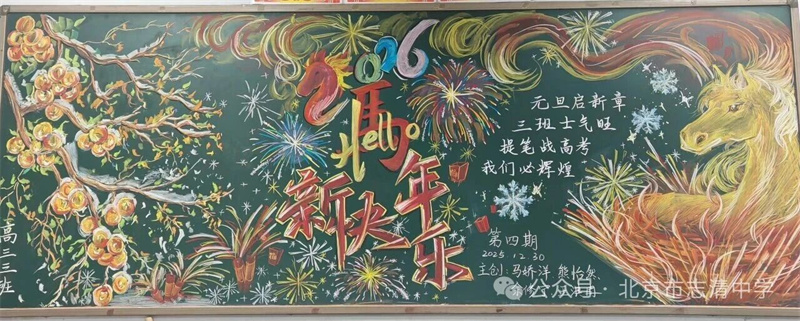 2026
馬
Hello
新年快乐
元旦启新章
三班士气旺
提笔战高考
我们必辉煌
第四期
2025.12.30
主创:马娇洋 熊怡然
高三三班
公众号 · 北京市志清中学